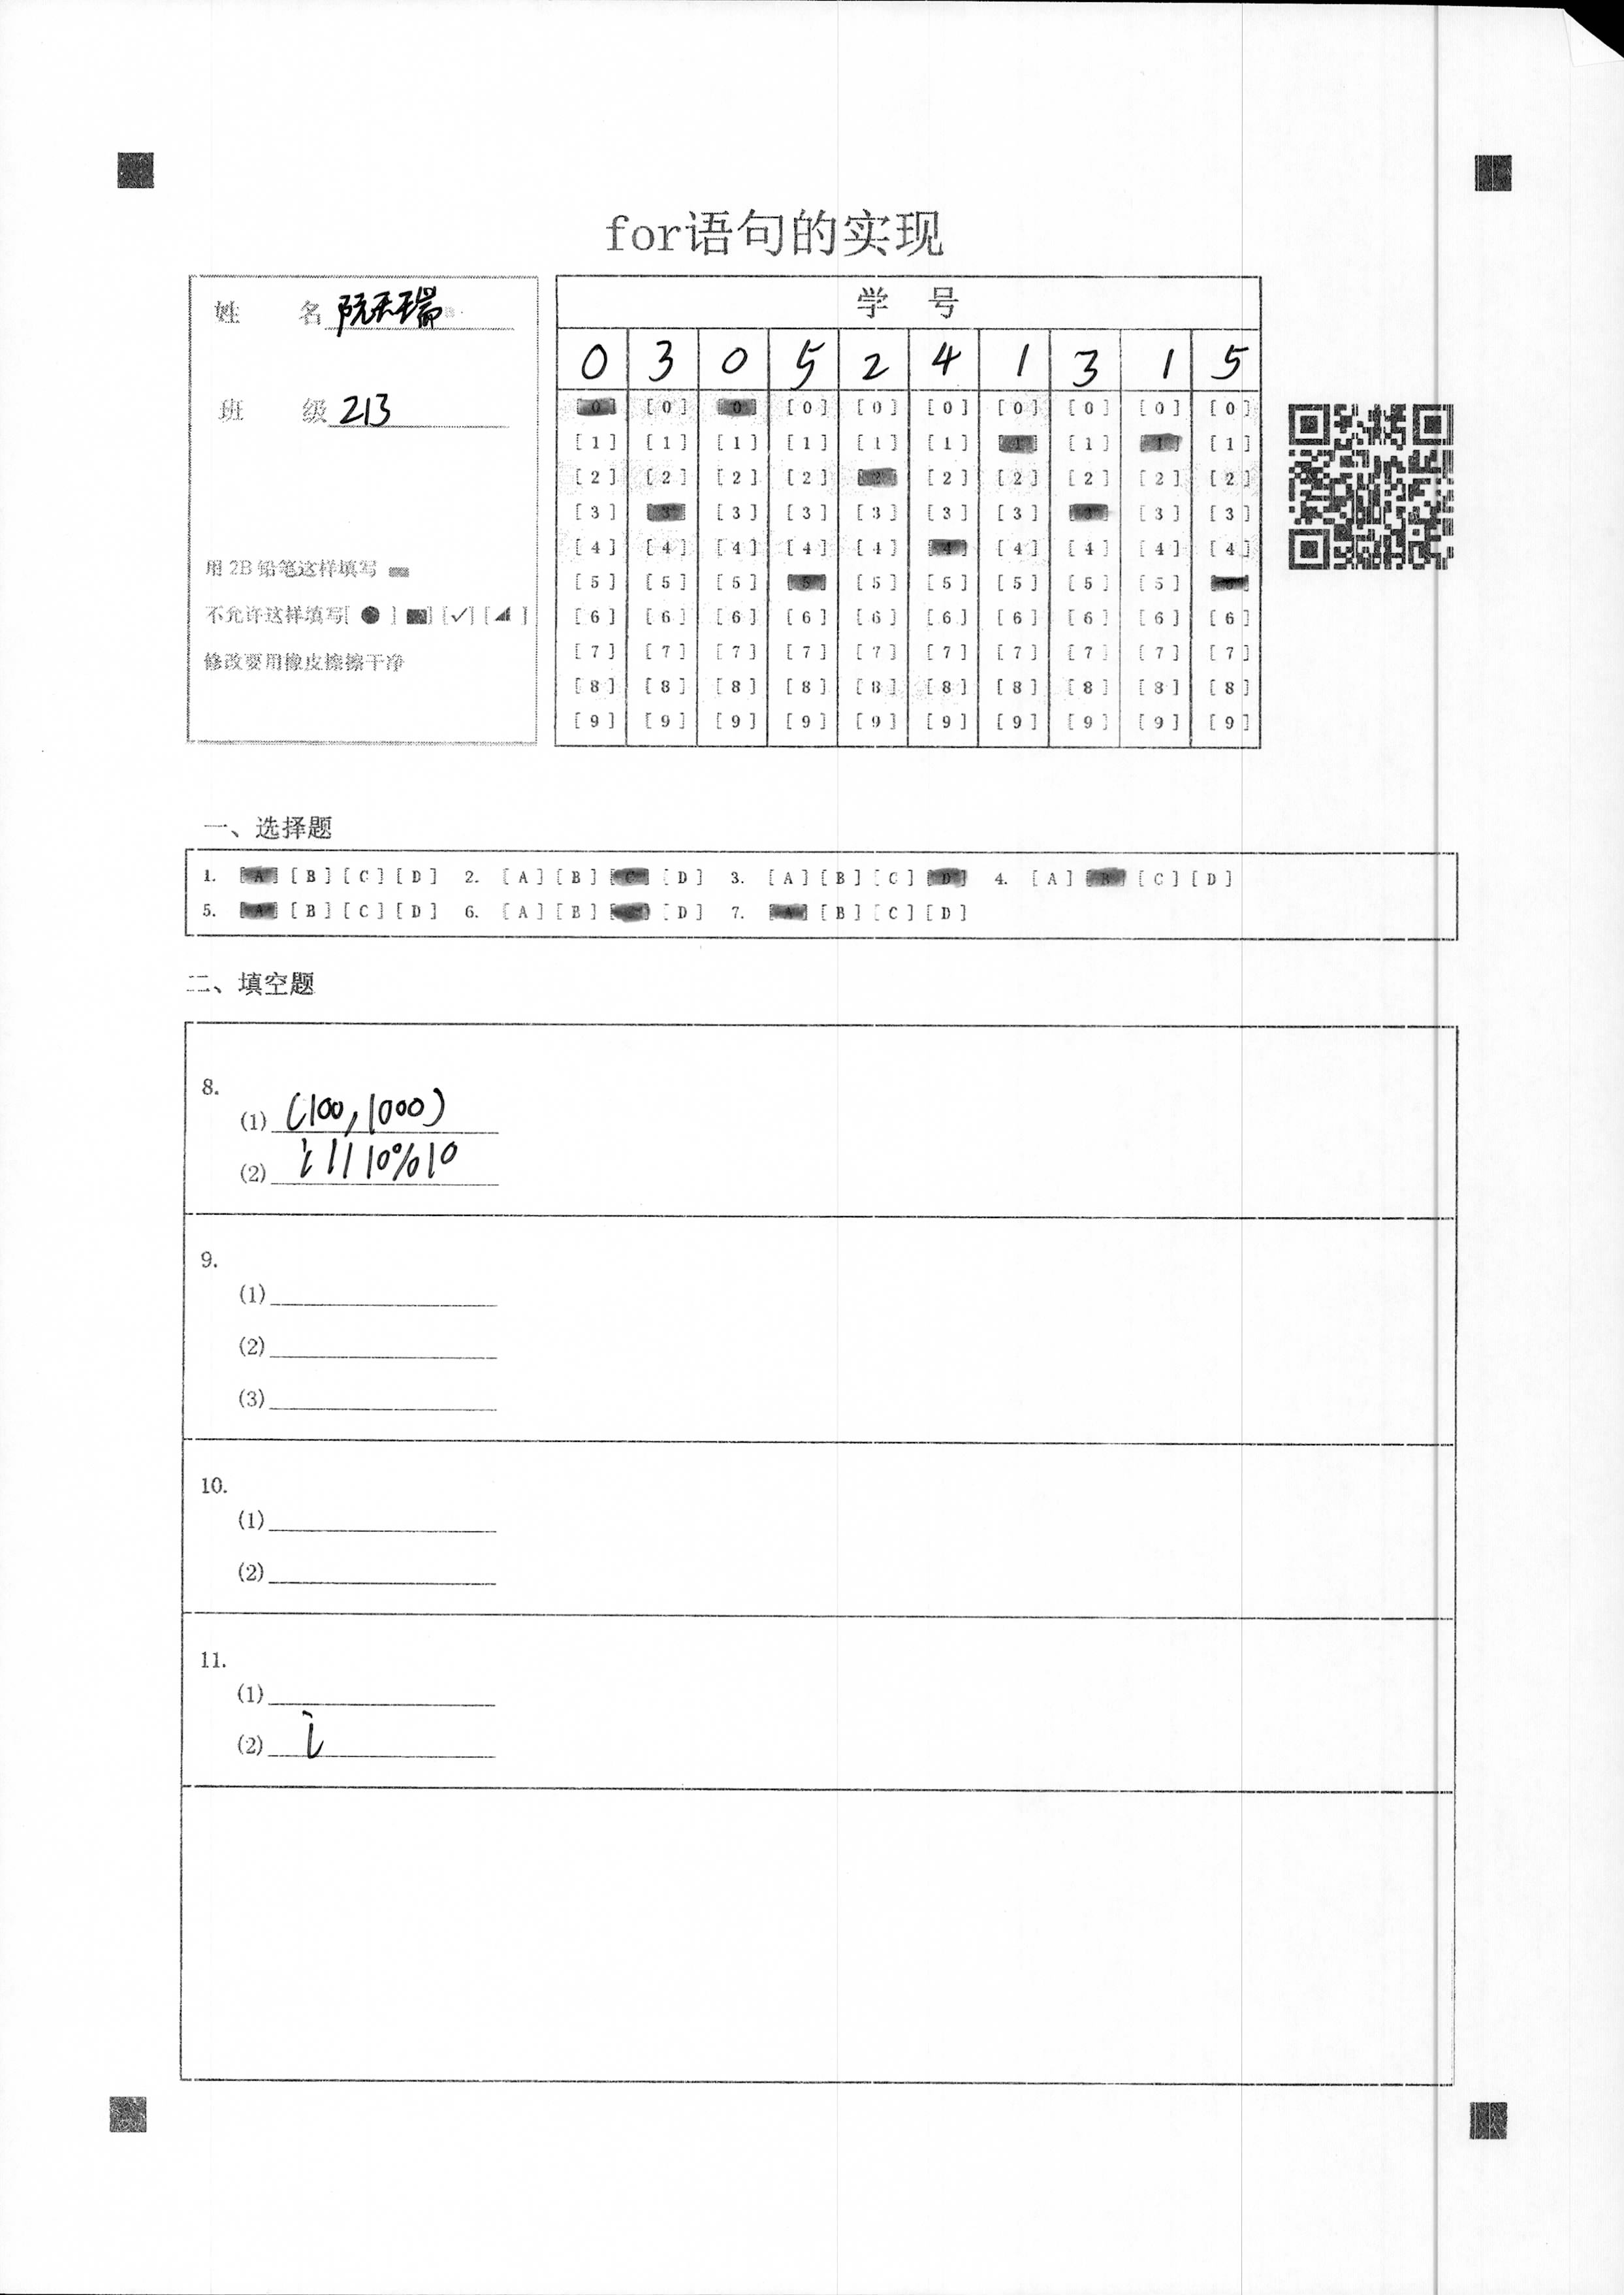 for语句的实现
姓 名
班 级 213
用 2B 铅笔这样填写
不允许这样填写[ ● ] [■] [✓] [◢ ]
修改要用橡皮擦擦干净
学 号
0 3 0 5 2 4 1 3 1 5
[0] [0] [0] [0] [0] [0] [0] [0] [0] [0]
[1] [1] [1] [1] [1] [1] [1] [1] [1] [1]
[2] [2] [2] [2] [2] [2] [2] [2] [2] [2]
[3] [3] [3] [3] [3] [3] [3] [3] [3] [3]
[4] [4] [4] [4] [4] [4] [4] [4] [4] [4]
[5] [5] [5] [5] [5] [5] [5] [5] [5] [5]
[6] [6] [6] [6] [6] [6] [6] [6] [6] [6]
[7] [7] [7] [7] [7] [7] [7] [7] [7] [7]
[8] [8] [8] [8] [8] [8] [8] [8] [8] [8]
[9] [9] [9] [9] [9] [9] [9] [9] [9] [9]
一、选择题
1. [A] [B] [C] [D] 2. [A] [B] [C] [D] 3. [A] [B] [C] [D] 4. [A] [B] [C] [D]
5. [A] [B] [C] [D] 6. [A] [B] [C] [D] 7. [A] [B] [C] [D]
二、填空题
8.
(1) (100,1000)
(2) i//10%10
9.
(1)
(2)
(3)
10.
(1)
(2)
11.
(1)
(2) i